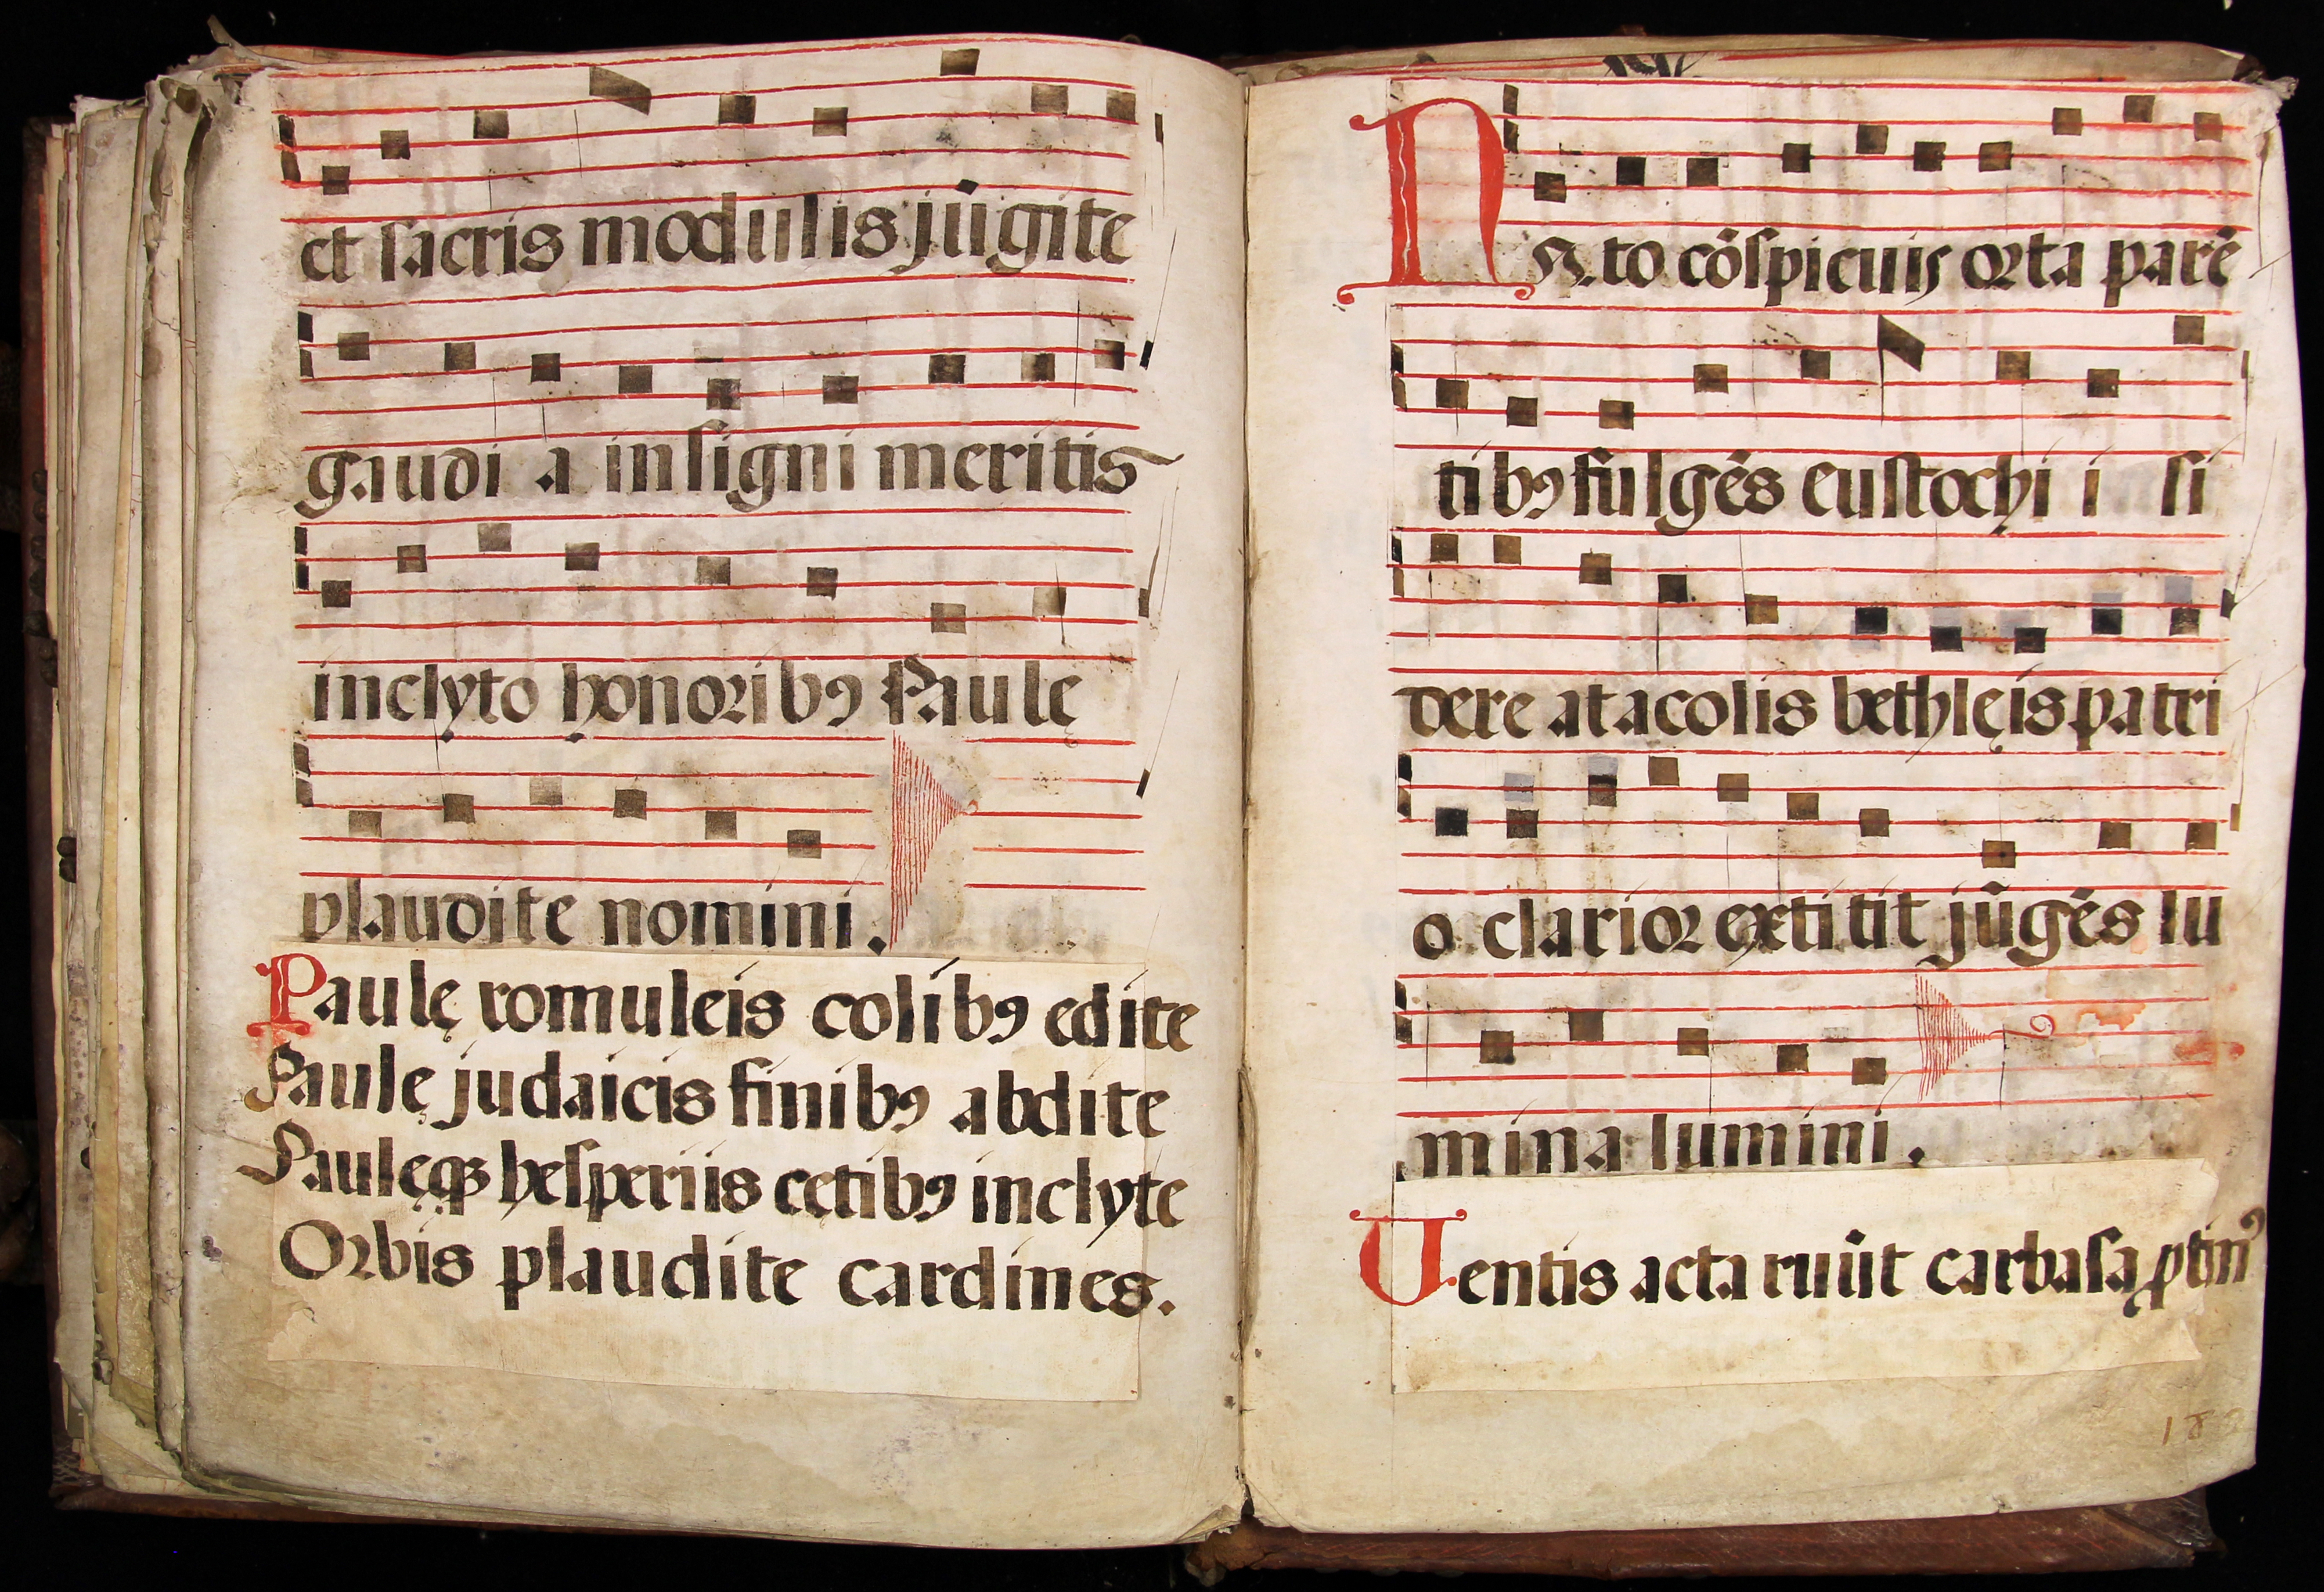 et sacris modulis jūgite
gaudi a insigni meritis
inclyto honoribꝰ Paulę
plaudite nomini.
Paulę romuleis colibꝰ edite
Paulę judaicis finibꝰ abdite
Paulęqꝫ hesperiis cętibꝰ inclyte
Orbis plaudite cardines.
Nato cōspicuis orta parē
tibꝰ fulgēs eustochi i si
dere at acolis bethlęis patri
o clarior extitit jūgēs lu
mina lumini.
Uentis acta ruūt carbasa ꝓtinꝰ